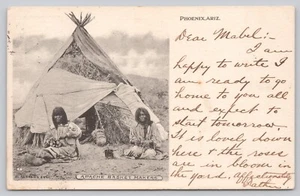 PHOENIX, ARIZ.
Dear Mabel:-
I am
happy to write I
am ready to go
home to you all
and expect to
start tomorrow.
It is lovely down
here & the roses
are in bloom in
the yard. Affectionately
APACHE BASKET MAKERS